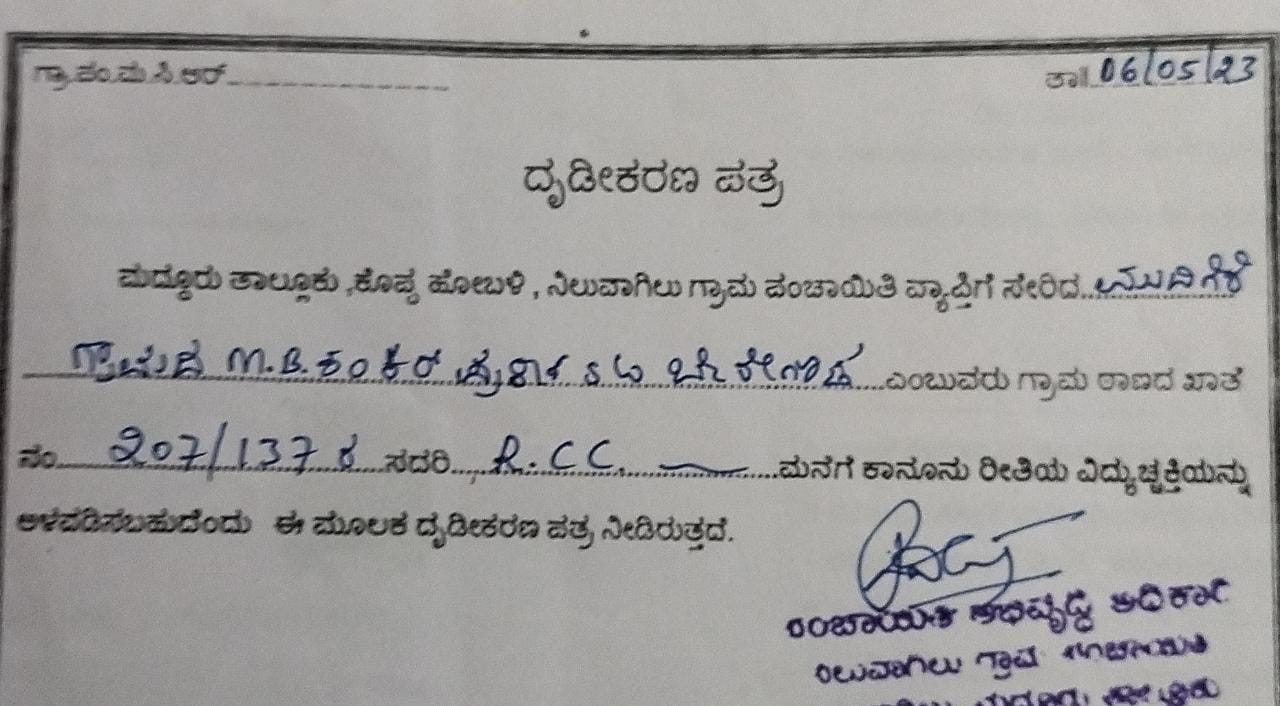 ಗ್ರಾ.ಪಂ.ಮ.ಸಿ.ಆರ್ ತಾ॥ 06/05/23
ದೃಡೀಕರಣ ಪತ್ರ
ಮದ್ದೂರು ತಾಲ್ಲೂಕು ,ಕೊಪ್ಪ ಹೋಬಳಿ , ನಿಲುವಾಗಿಲು ಗ್ರಾಮ ಪಂಚಾಯಿತಿ ವ್ಯಾಪ್ತಿಗೆ ಸೇರಿದ ಮುದಿಗೆರೆ
ಗ್ರಾಮದ M.B. ಶಂಕರ ಎಂಬುವರು ಗ್ರಾಮ ಠಾಣದ ಖಾತೆ
ನಂ 207/137 ರ ಸದರಿ R.CC. ಮನೆಗೆ ಕಾನೂನು ರೀತಿಯ ವಿದ್ಯುಚ್ಛಕ್ತಿಯನ್ನು
ಅಳವಡಿಸಬಹುದೆಂದು ಈ ಮೂಲಕ ದೃಡೀಕರಣ ಪತ್ರ ನೀಡಿರುತ್ತದೆ.
ಪಂಚಾಯತಿ ಅಭಿವೃದ್ಧಿ ಅಧಿಕಾರಿ
ನಿಲುವಾಗಿಲು ಗ್ರಾಮ ಪಂಚಾಯಿತಿ